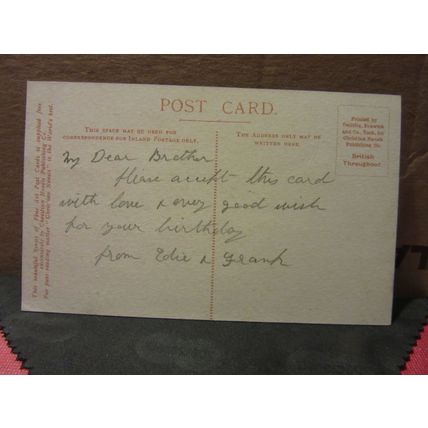 POST CARD.
THIS SPACE MAY BE USED FOR
CORRESPONDENCE FOR INLAND POSTAGE ONLY.
THE ADDRESS ONLY MAY BE
WRITTEN HERE
Printed by
and Co., York, for
Christian Novels
Publishing Co.
British
Throughout
My Dear Brother
Please accept this card
with love & every good wish
for your birthday
from Edie & Frank
This beautiful Series of Fine Art Post Cards is supplied free
exclusively by Christian Novels Publishing Co.
"Christian Novels" is the World's best.